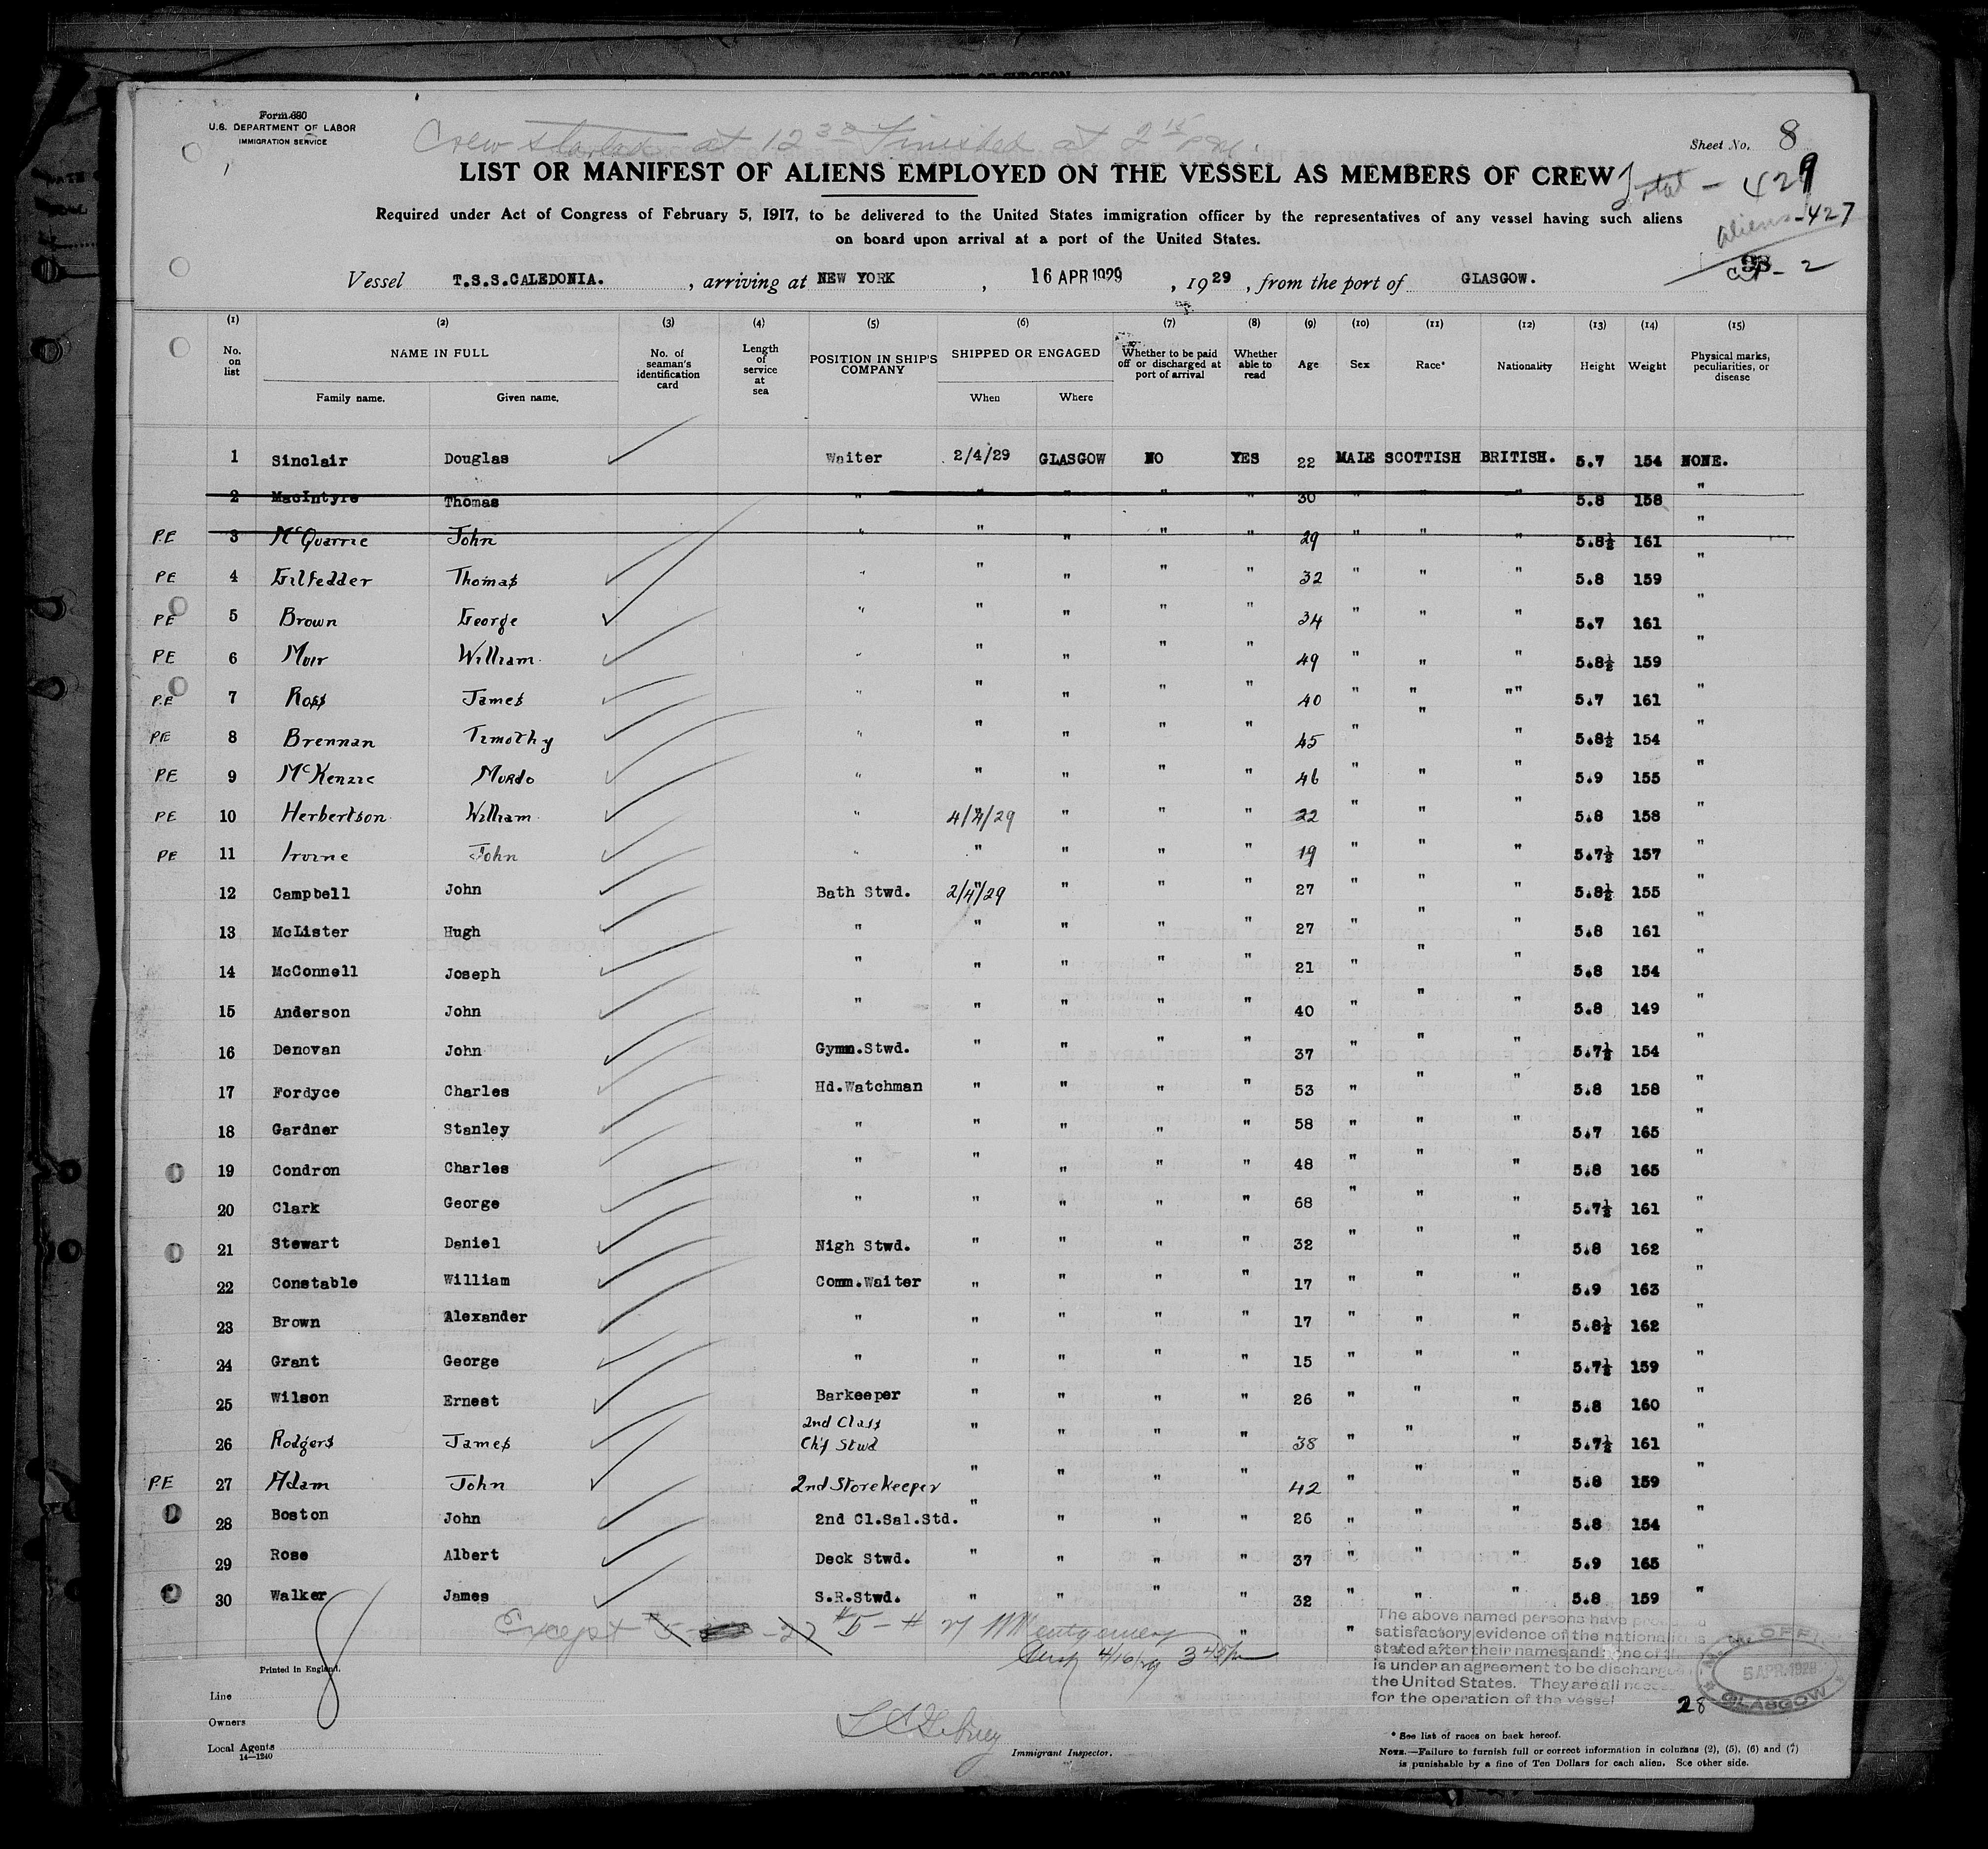 Form 680
U.S. DEPARTMENT OF LABOR
IMMIGRATION SERVICE
Crew started at 12 30 Finished at 2 15 pm.
Sheet No. 8
LIST OR MANIFEST OF ALIENS EMPLOYED ON THE VESSEL AS MEMBERS OF CREW
Total - 429
Required under Act of Congress of February 5, 1917, to be delivered to the United States immigration officer by the representatives of any vessel having such aliens
aliens - 427
on board upon arrival at a port of the United States.
- 2
Vessel T.S.S.CALEDONIA. , arriving at NEW YORK , 16 APR 1929 , 1929 , from the port of GLASGOW.
(1) (2) (3) (4) (5) (6) (7) (8) (9) (10) (11) (12) (13) (14) (15)
No. on list NAME IN FULL Family name. Given name. No. of seaman's identification card Length of service at sea POSITION IN SHIP'S COMPANY SHIPPED OR ENGAGED When Where Whether to be paid off or discharged at port of arrival Whether able to read Age Sex Race* Nationality Height Weight Physical marks, peculiarities, or disease
1 Sinclair Douglas Waiter 2/4/29 GLASGOW NO YES 22 MALE SCOTTISH BRITISH. 5.7 154 NONE.
2 MacIntyre Thomas " " " " " 30 " " " 5.8 158 "
PE 3 McQuarrie John " " " " " 29 " " " 5.8½ 161 "
PE 4 Gilfedder Thomas " " " " " 32 " " " 5.8 159 "
PE 5 Brown George " " " " " 34 " " " 5.7 161 "
PE 6 Muir William " " " " " 49 " " " 5.8½ 159 "
PE 7 Ross James " " " " " 40 " " "" 5.7 161 "
PE 8 Brennan Timothy " " " " " 45 " " " 5.8½ 154 "
PE 9 McKenzie Murdo " " " " " 46 " " " 5.9 155 "
PE 10 Herbertson William " 4/4/29 " " " 22 " " " 5.8 158 "
PE 11 Irvine John " " " " " 19 " " " 5.7½ 157 "
12 Campbell John Bath Stwd. 2/4/29 " " " 27 " " " 5.8½ 155 "
13 McLister Hugh " " " " " 27 " " " 5.8 161 "
14 McConnell Joseph " " " " " 21 " " " 5.8 154 "
15 Anderson John " " " " " 40 " " " 5.8 149 "
16 Denovan John Gymn.Stwd. " " " " 37 " " " 5.7½ 154 "
17 Fordyce Charles Hd.Watchman " " " " 53 " " " 5.8 158 "
18 Gardner Stanley " " " " " 58 " " " 5.7 165 "
19 Condron Charles " " " " " 48 " " " 5.8 165 "
20 Clark George " " " " " 68 " " " 5.7½ 161 "
21 Stewart Daniel Nigh Stwd. " " " " 32 " " " 5.8 162 "
22 Constable William Comm.Waiter " " " " 17 " " " 5.9 163 "
23 Brown Alexander " " " " " 17 " " " 5.8½ 162 "
24 Grant George " " " " " 15 " " " 5.7½ 159 "
25 Wilson Ernest Barkeeper " " " " 26 " " " 5.8 160 "
26 Rodgers James 2nd Class Chf Stwd " " " " 38 " " " 5.7½ 161 "
PE 27 Adam John 2nd Storekeeper " " " " 42 " " " 5.8 159 "
28 Boston John 2nd Cl.Sal.Std. " " " " 26 " " " 5.8 154 "
29 Rose Albert Deck Stwd. " " " " 37 " " " 5.9 165 "
30 Walker James S.R.Stwd. " " " " 32 " " " 5.8 159 "
Except #5 - 27 #5 - # 27 Montgomery
4/16/29 3 45 pm
The above named persons have
satisfactory evidence of the
stated after their names and none of
is under an agreement to be discharged
the United States. They are all
for the operation of the vessel
28
5 APR.1929
GLASGOW
Printed in England.
Line
Owners
Local Agents
14—1240
Immigrant Inspector.
* See list of races on back hereof.
NOTE.—Failure to furnish full or correct information in columns (2), (5), (6) and (7)
is punishable by a fine of Ten Dollars for each alien. See other side.